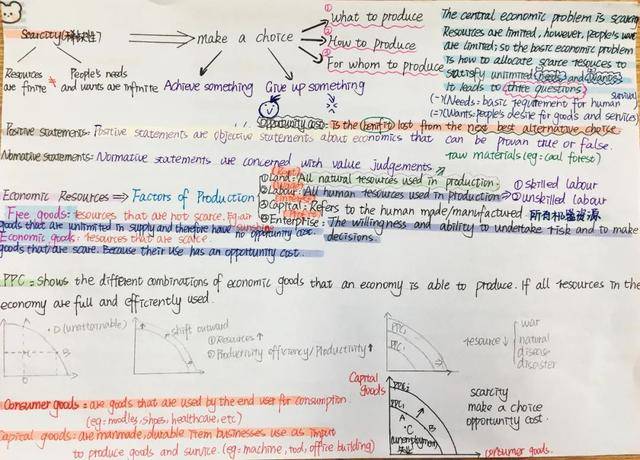 Scarcity (稀缺性)
make a choice
① what to produce
② How to produce
③ For whom to produce
Resources are finite
People's needs and wants are infinite
Achieve something
Give up something
The central economic problem is scarcity
Resources are limited, however, people's wants
are limited; so the basic economic problem
is how to allocate scarce resources to
satisfy unlimited needs and wants.
It leads to three questions
survival
Needs: basic requirement for human
Wants: people's desire for goods and services
Opportunity cost: is the benefit lost from the next best alternative choice.
Positive statements: Positive statements are objective statements about economics that can be proven true or false.
Normative statements: Normative statements are concerned with value judgements.
raw materials (eg: coal forest)
Economic Resources ⇒ Factors of Production
① Land: All natural resources used in production.
② Labour: All human resources used in production
① skilled labour
② unskilled labour
③ Capital: Refers to the human made/manufactured
④ Enterprise: The willingness and ability to undertake risk and to make
decisions.
Free goods: resources that are not scarce. Eg: air
sunshine
goods that are unlimited in supply and therefore have no opportunity cost.
Economic goods: resources that are scarce.
goods that are scarce. Because their use has an opportunity cost.
PPC: Shows the different combinations of economic goods that an economy is able to produce. If all resources in the
economy are full and efficiently used.
D (unattainable)
B
shift outward
① Resources ↑
② Productivity efficiency/Productivity ↑
PPC₁
PPC₂
resource ↓
war
natural
disease
disaster
Capital goods
PPC₂
PPC₁
A
B
C
(unemployment)
失业
consumer goods.
scarcity
make a choice
opportunity cost.
Consumer goods: are goods that are used by the end user for consumption.
(eg: noodles, shoes, healthcare, etc)
Capital goods: are manmade, durable item businesses use as input
to produce goods and survice. (eg: machine, tool, office building)